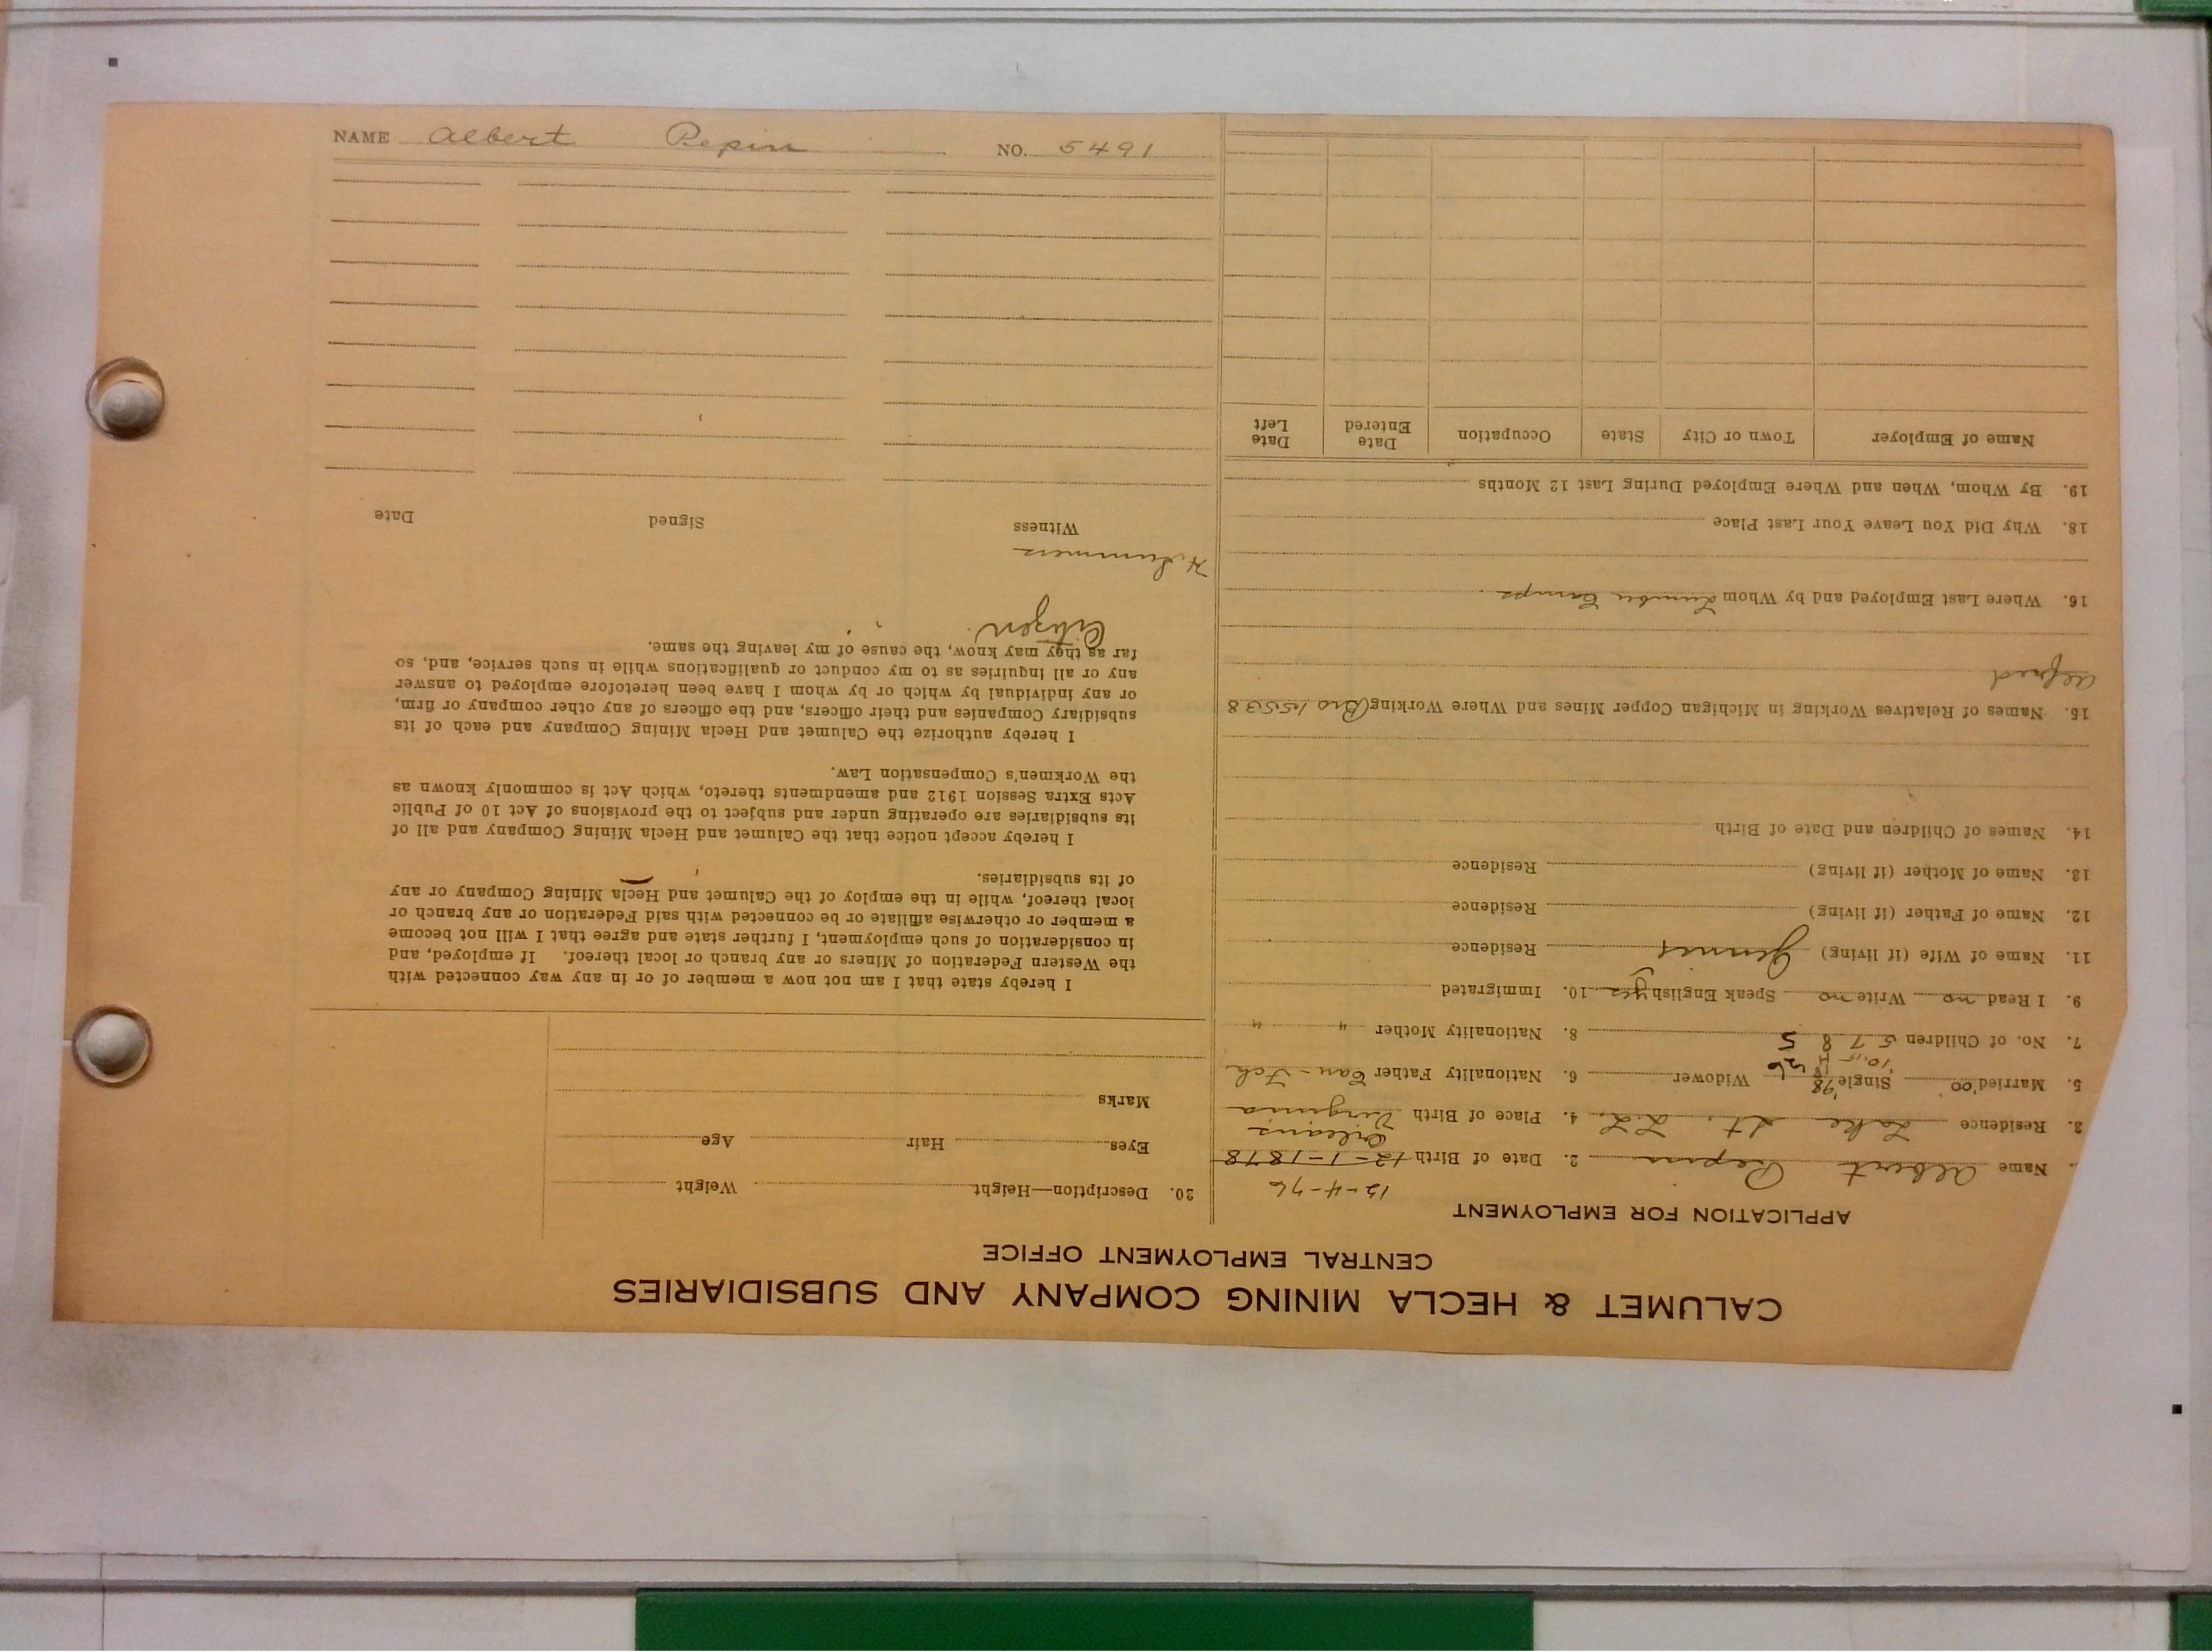 CALUMET & HECLA MINING COMPANY AND SUBSIDIARIES
CENTRAL EMPLOYMENT OFFICE
APPLICATION FOR EMPLOYMENT
12-4-76
Name Albert Pepin 2. Date of Birth 12-1-1878
Orleans
3. Residence Lake St. L.L. 4. Place of Birth Virginia
5. Married '00 Single '98 Widower 6. Nationality Father Can-Fch
7. No. of Children 5 7 8 5 8. Nationality Mother " "
9. I Read no Write no Speak English yes 10. Immigrated
11. Name of Wife (if living) Jennie Residence
12. Name of Father (if living) Residence
13. Name of Mother (if living) Residence
14. Names of Children and Date of Birth
15. Names of Relatives Working in Michigan Copper Mines and Where Working Bro 15538
Alfred
16. Where Last Employed and by Whom Lumber Camps
18. Why Did You Leave Your Last Place
19. By Whom, When and Where Employed During Last 12 Months
Name of Employer Town or City State Occupation Date Entered Date Left
20. Description—Height Weight
Eyes Hair Age
Marks
I hereby state that I am not now a member of or in any way connected with
the Western Federation of Miners or any branch or local thereof. If employed, and
in consideration of such employment, I further state and agree that I will not become
a member or otherwise affiliate or be connected with said Federation or any branch or
local thereof, while in the employ of the Calumet and Hecla Mining Company or any
of its subsidiaries.
I hereby accept notice that the Calumet and Hecla Mining Company and all of
its subsidiaries are operating under and subject to the provisions of Act 10 of Public
Acts Extra Session 1912 and amendments thereto, which Act is commonly known as
the Workmen's Compensation Law.
I hereby authorize the Calumet and Hecla Mining Company and each of its
subsidiary Companies and their officers, and the officers of any other company or firm,
or any individual by which or by whom I have been heretofore employed to answer
any or all inquiries as to my conduct or qualifications while in such service, and, so
far as they may know, the cause of my leaving the same.
Citizen
H. Summers
Witness Signed Date
NAME Albert Pepin NO. 5491